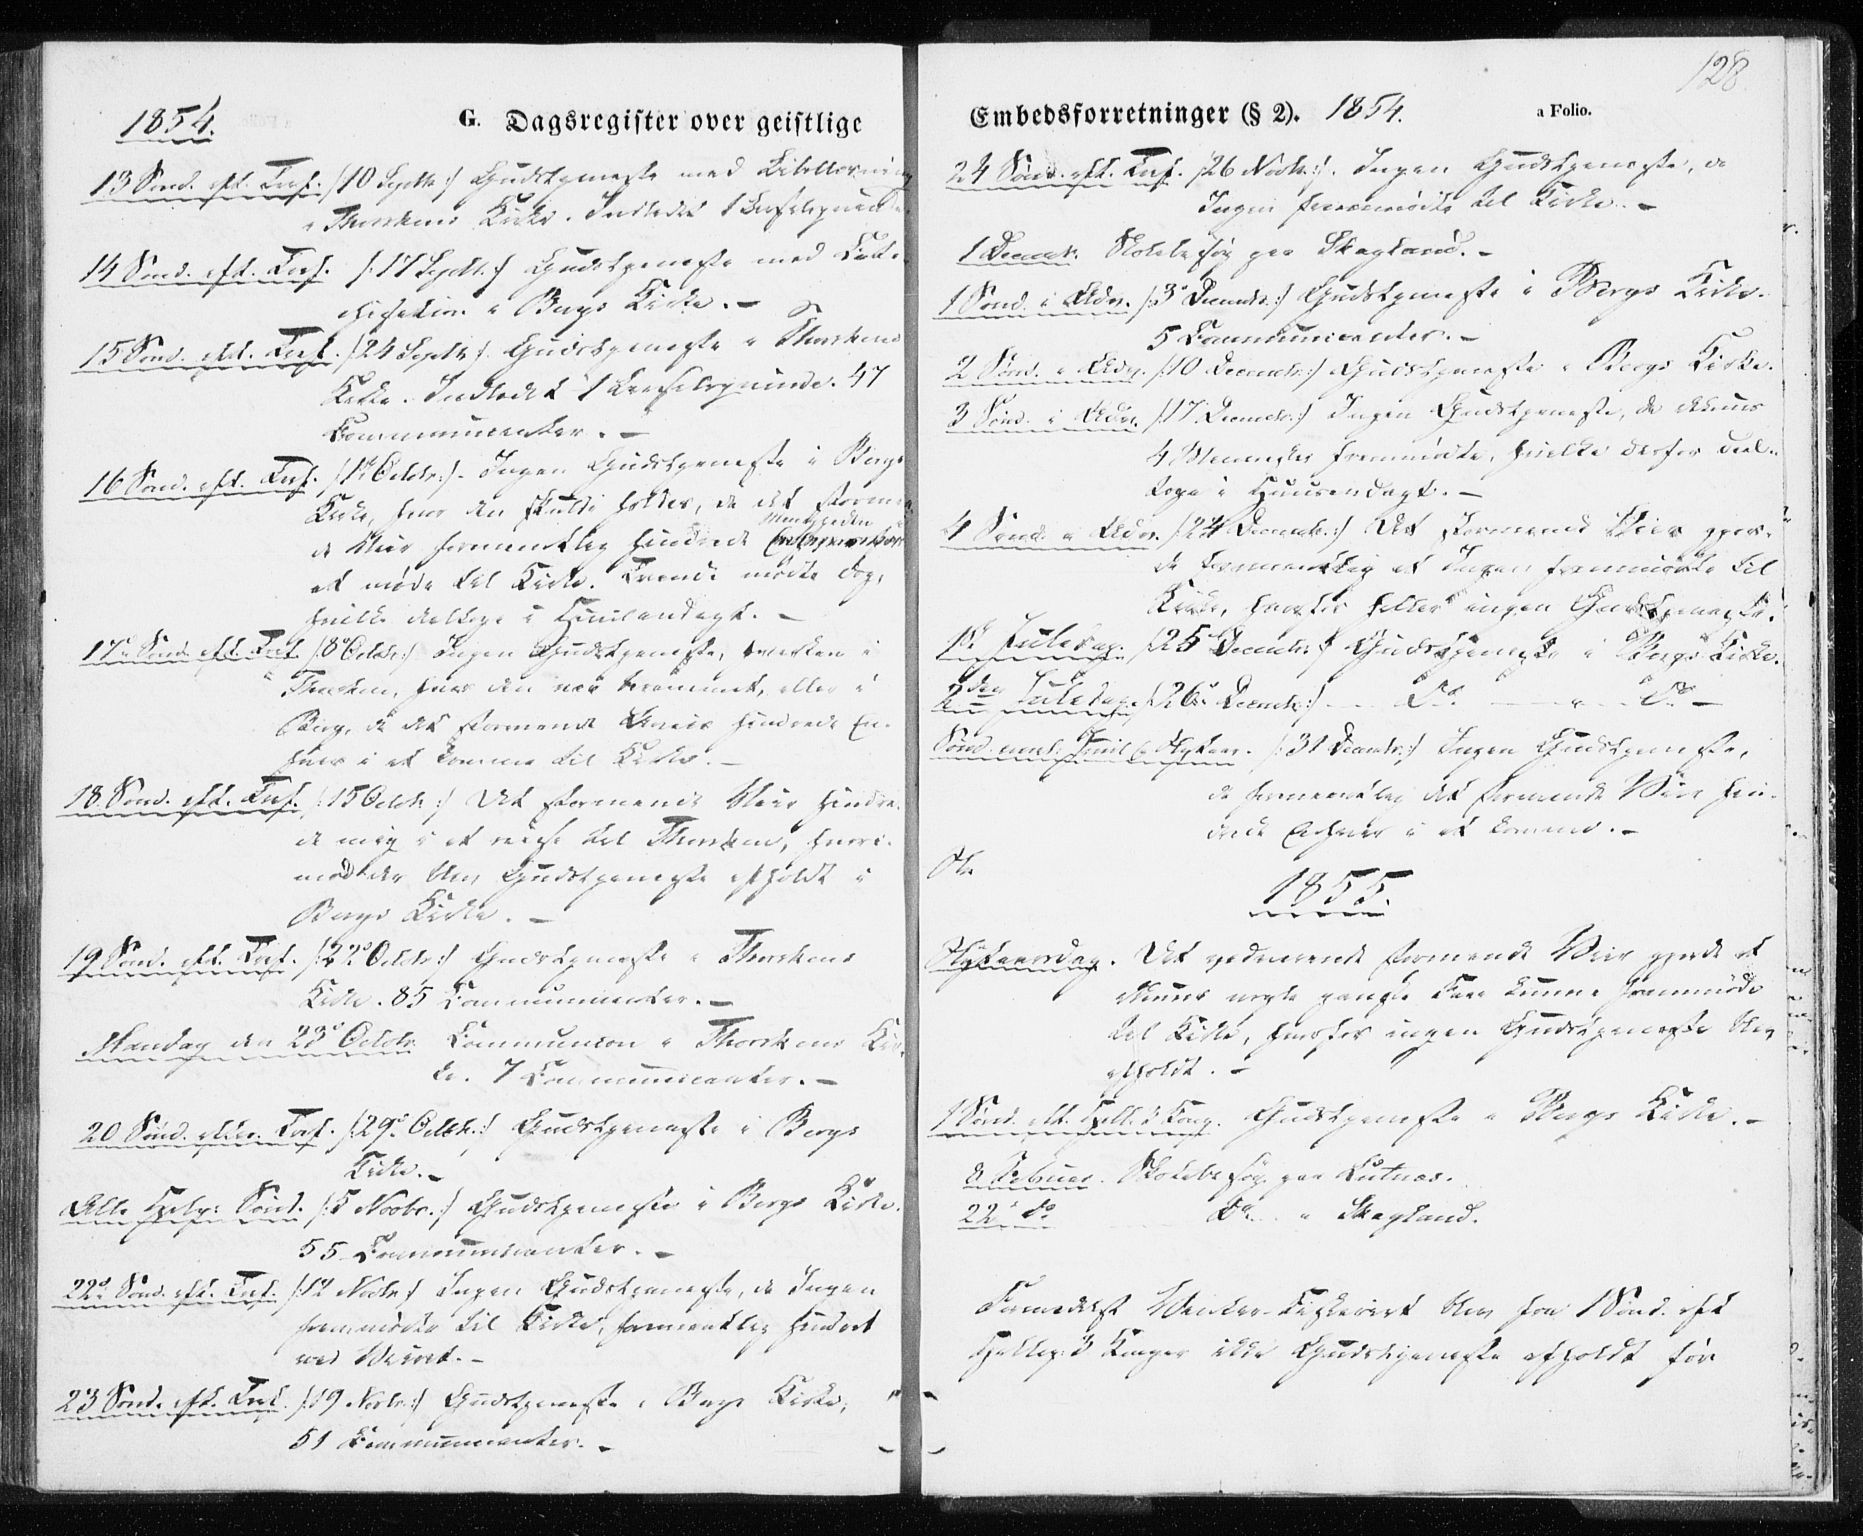 1854.
G. Dagsregister over geistlige
13 Sønd. eft. Tref. /:10 Septbr:/ Gudstjeneste med
i Thorskens Kirke. Indledet 1
14 Sønd. eft. Tref. /:17 Septbr:/ Gudstjeneste med Cate-
chisation i Bergs Kirke. –
15 Sønd. eft. Tref. /:24 Septbr:/ Gudstjeneste i Thorskens
Kirke. Indledet 1 Barselqvinde. 47
Communicanter. –
16 Sønd. eft. Tref. /:1 Octbr:/ - Ingen Gudstjeneste i Bergs
Kirke, hvor den skulde holdes, da det stormen-
de Veir formentlig hindrede Menigheden i
at møde til Kirke. Trende mødte dog,
hvilke deeltoge i Huusandagt. –
17 Sønd. eft. Tref. /:8 Octbr:/ Ingen Gudstjeneste, hverken i
Thorsken, hvor den var berammet, eller i
Berg, da det stormende Veir hindrede En-
hver i at komme til Kirke. –
18 Sønd. eft. Tref. /:15 Octbr:/ Det stormende Veir hindre-
de mig i at reise til Thorsken, hvori-
mod der blev Gudstjeneste afholdt i
Bergs Kirke. –
19 Sønd. eft. Tref. /:22 Octbr:/ Gudstjeneste i Thorskens
Kirke. 85 Communicanter. –
Mandag den 23 Octbr. Communion i Thorskens Kir-
ke. 7 Communicanter. –
20 Sønd. efter Tref. /:29 Octbr:/ Gudstjeneste i Bergs
Kirke. –
Alle Helg: Sønd. /:5 Novbr:/ Gudstjeneste i Bergs Kirke.
55 Communicanter. –
22 Sønd. eft. Tref. /:12 Novbr:/ Ingen Gudstjeneste, da Ingen
fremmødte til Kirke, formentlig hindret
ved Veiret. –
23 Sønd. eft. Tref. /:19 Novbr:/ Gudstjeneste i Bergs Kirke,
51 Communicanter. –
128
Embedsforretninger (§ 2). 1854. a Folio.
24 Sønd. eft. Tref. /:26 Novbr:/. Ingen Gudstjeneste, da
Ingen fremmødte til Kirke. –
1 Decembr. Skolebesøg paa Skagland. –
1 Sønd. i Adv. /:3 Decembr:/ Gudstjeneste i Bergs Kirke.
5 Communicanter. –
2 Sønd. i Adv. /:10 Decembr:/ Gudstjeneste i Bergs Kirke.
3 Sønd. i Adv. /:17 Decembr:/ Ingen Gudstjeneste, da alene
4 Mennesker fremmødte, hvilke derfor deel-
toge i Huusandagt. –
4 Sønd. i Adv. /:24 Decembr:/ Det stormende Veir gjor-
de formentlig at Ingen fremmødte til
Kirke, hvorfor holdtes ingen Gudstjeneste.
1ste Juledag. /:25 Decembr:/ Gudstjeneste i Bergs Kirke.
2den Juledag. /:26 Decembr:/ – Do – " – Do –
Sønd. mel. Juul & Nytaar. /:31 Decembr:/ Ingen Gudstjeneste,
da formentlig det stormende Veir hin-
drede Enhver i at komme. –
1855.
Nytaarsdag. Det vedvarende stormende Veir gjorde at
alene nogle ganske Faae kunne fremmøde
til Kirke, hvorfor ingen Gudstjeneste blev
afholdt. –
1 Sønd. eft. Hell. 3 Kong. Gudstjeneste i Bergs Kirke. –
8 Februar. Skolebesøg paa Lutnes.
22 do Do " Skagland.
Formedelst Vinter-Fiskeriet blev fra 1 Sønd. eft
Hellig 3 Konger ikke Gudstjeneste afholdt før